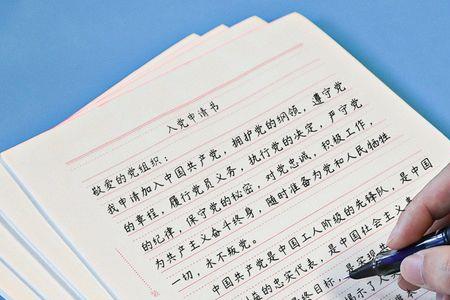 入党申请书
敬爱的党组织：
我申请加入中国共产党，拥护党的纲领，遵守党
的章程，履行党员义务，执行党的决定，严守党
的纪律，保守党的秘密，对党忠诚，积极工作，
为共产主义奋斗终身，随时准备为党和人民牺牲
一切，永不叛党。
中国共产党是中国工人阶级的先锋队，是中国
的忠实代表，是中国社会主义
终目标，是实现共
揭示了人